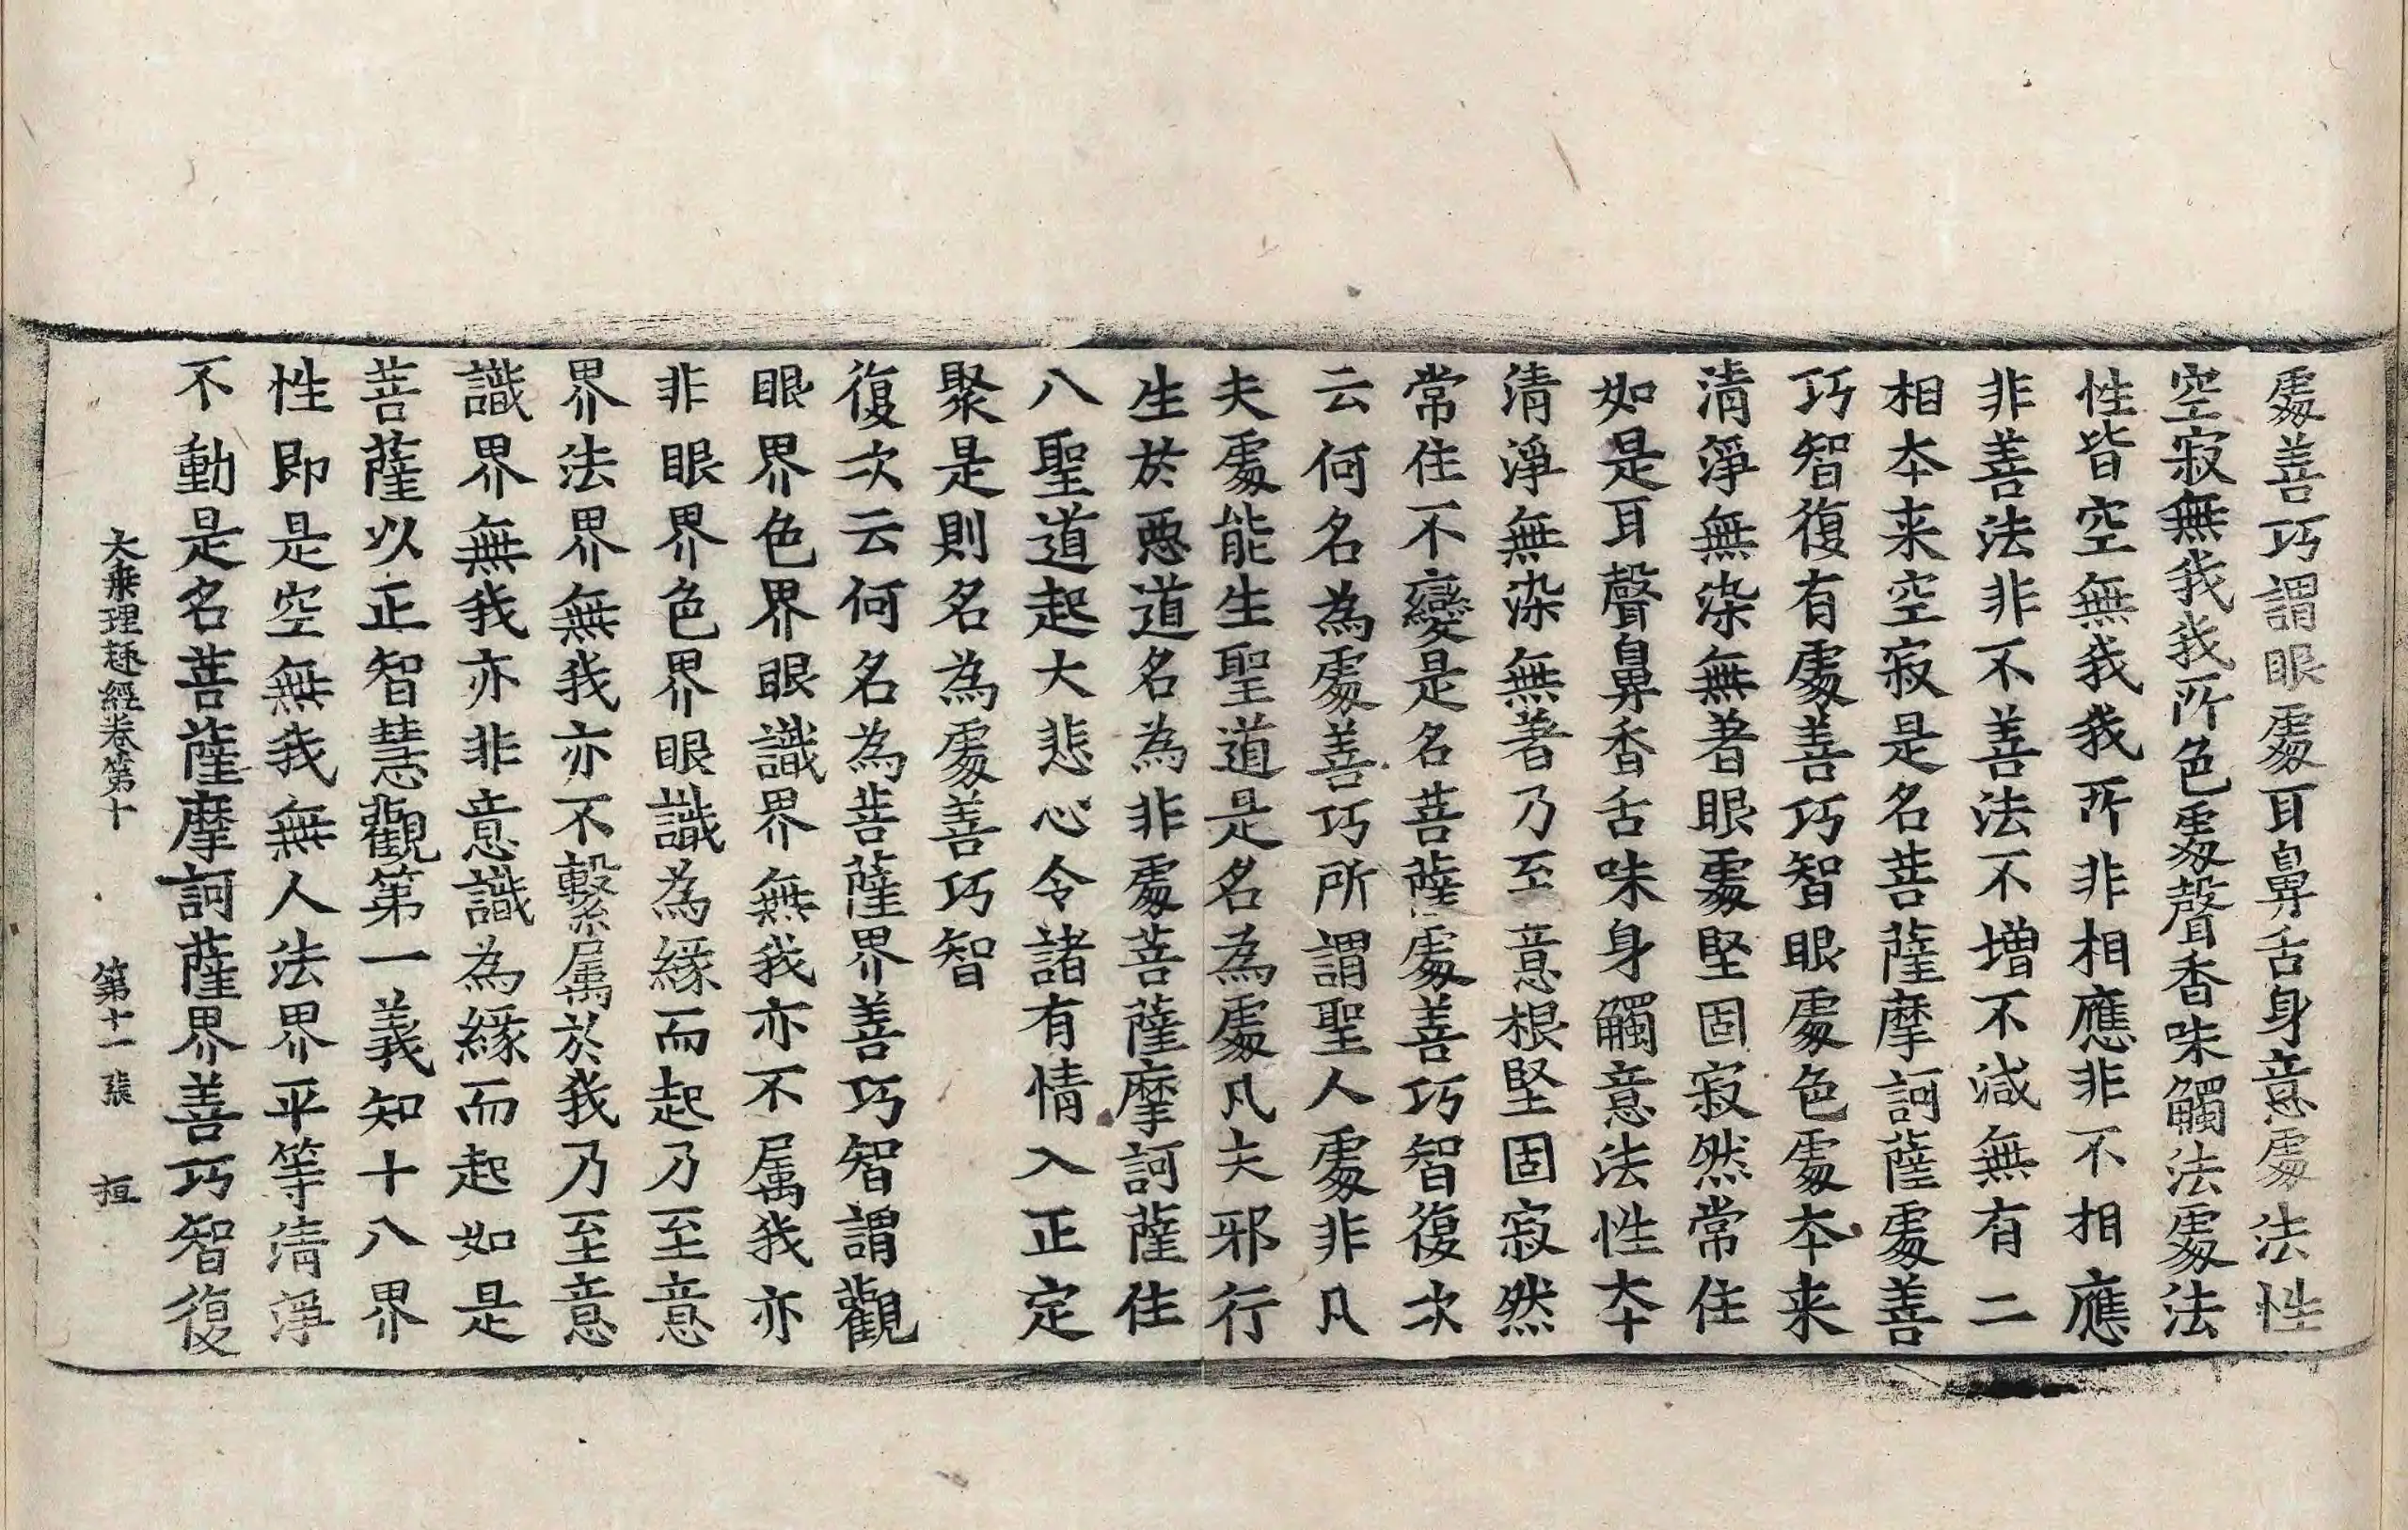 處善巧謂眼處耳鼻舌身意處法性
空寂無我我所色處聲香味觸法處法
性皆空無我我所非相應非不相應
非善法非不善法不增不減無有二
相本来空寂是名菩薩摩訶薩處善
巧智復有處善巧智眼處色處本来
清淨無染無著眼處堅固寂然常住
如是耳聲鼻香舌味身觸意法性本
清淨無染無著乃至意根堅固寂然
常住不變是名菩薩處善巧智復次
云何名為處善巧所謂聖人處非凡
夫處能生聖道是名為處凡夫邪行
生於惡道名為非處菩薩摩訶薩住
八聖道起大悲心令諸有情入正定
聚是則名為處善巧智
復次云何名為菩薩界善巧智謂觀
眼界色界眼識界無我亦不属我亦
非眼界色界眼識為緣而起乃至意
界法界無我亦不繫属於我乃至意
識界無我亦非意識為緣而起如是
菩薩以正智慧觀第一義知十八界
性即是空無我無人法界平等清淨
不動是名菩薩摩訶薩界善巧智復
大乘理趣經卷第十 第十一張 桓